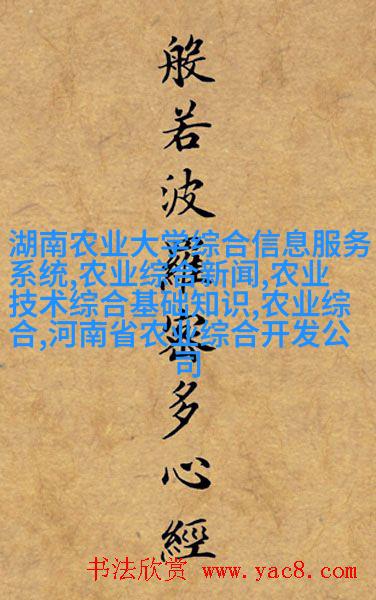 般若波羅蜜多心經
湖南农业大学综合信息服务
系统,农业综合新闻,农业
技术综合基础知识,农业综
合,河南省农业综合开发公
司
书法欣赏 www.yac8.com